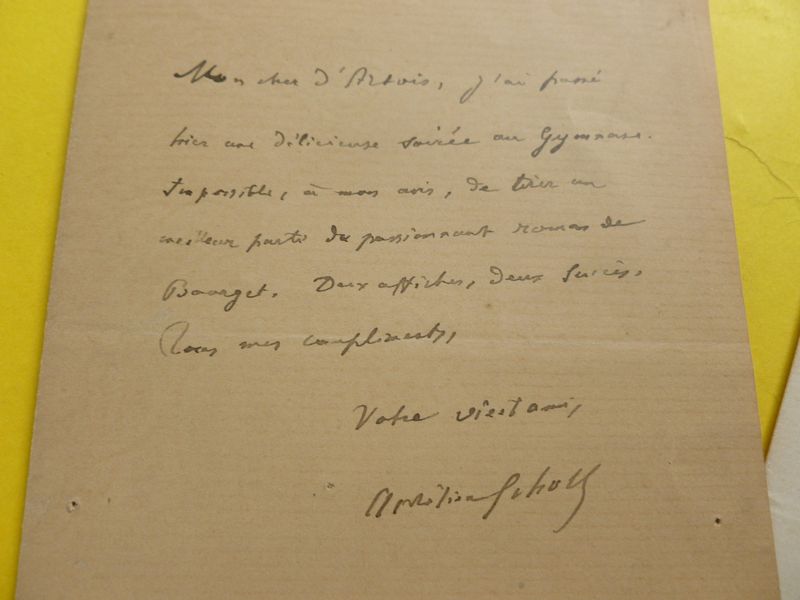 Mon cher d'Artois, j'ai passé
hier une délicieuse soirée au Gymnase.
Impossible, à mon avis, de tirer un
meilleur parti du passionnant roman de
Bourget. Deux affiches, deux succès.
Tous mes compliments,
Votre vieil ami,
Aurélien Scholl